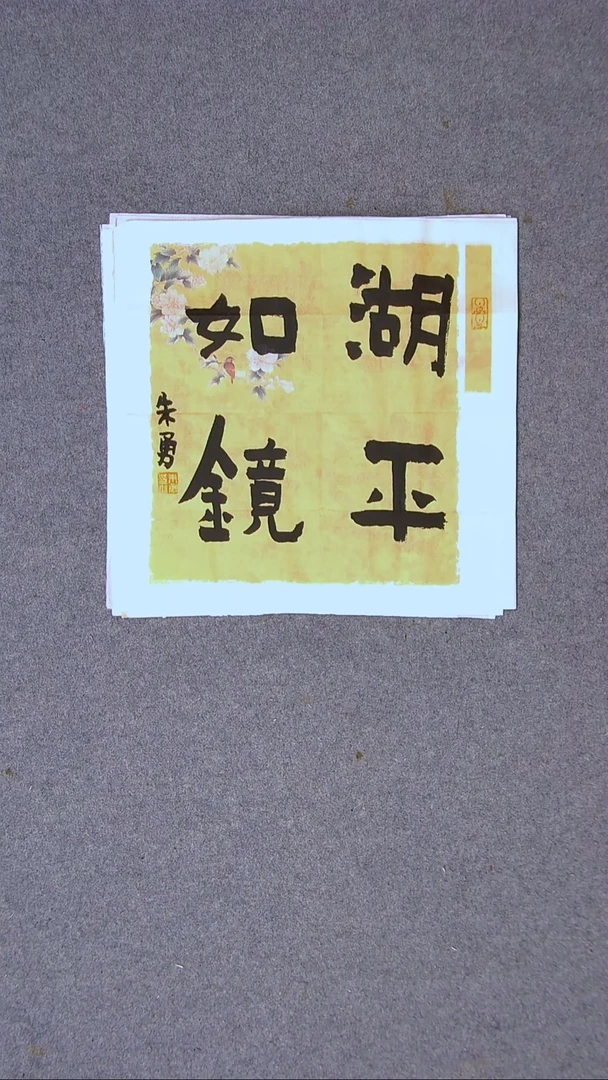 湖平
如鏡
朱勇